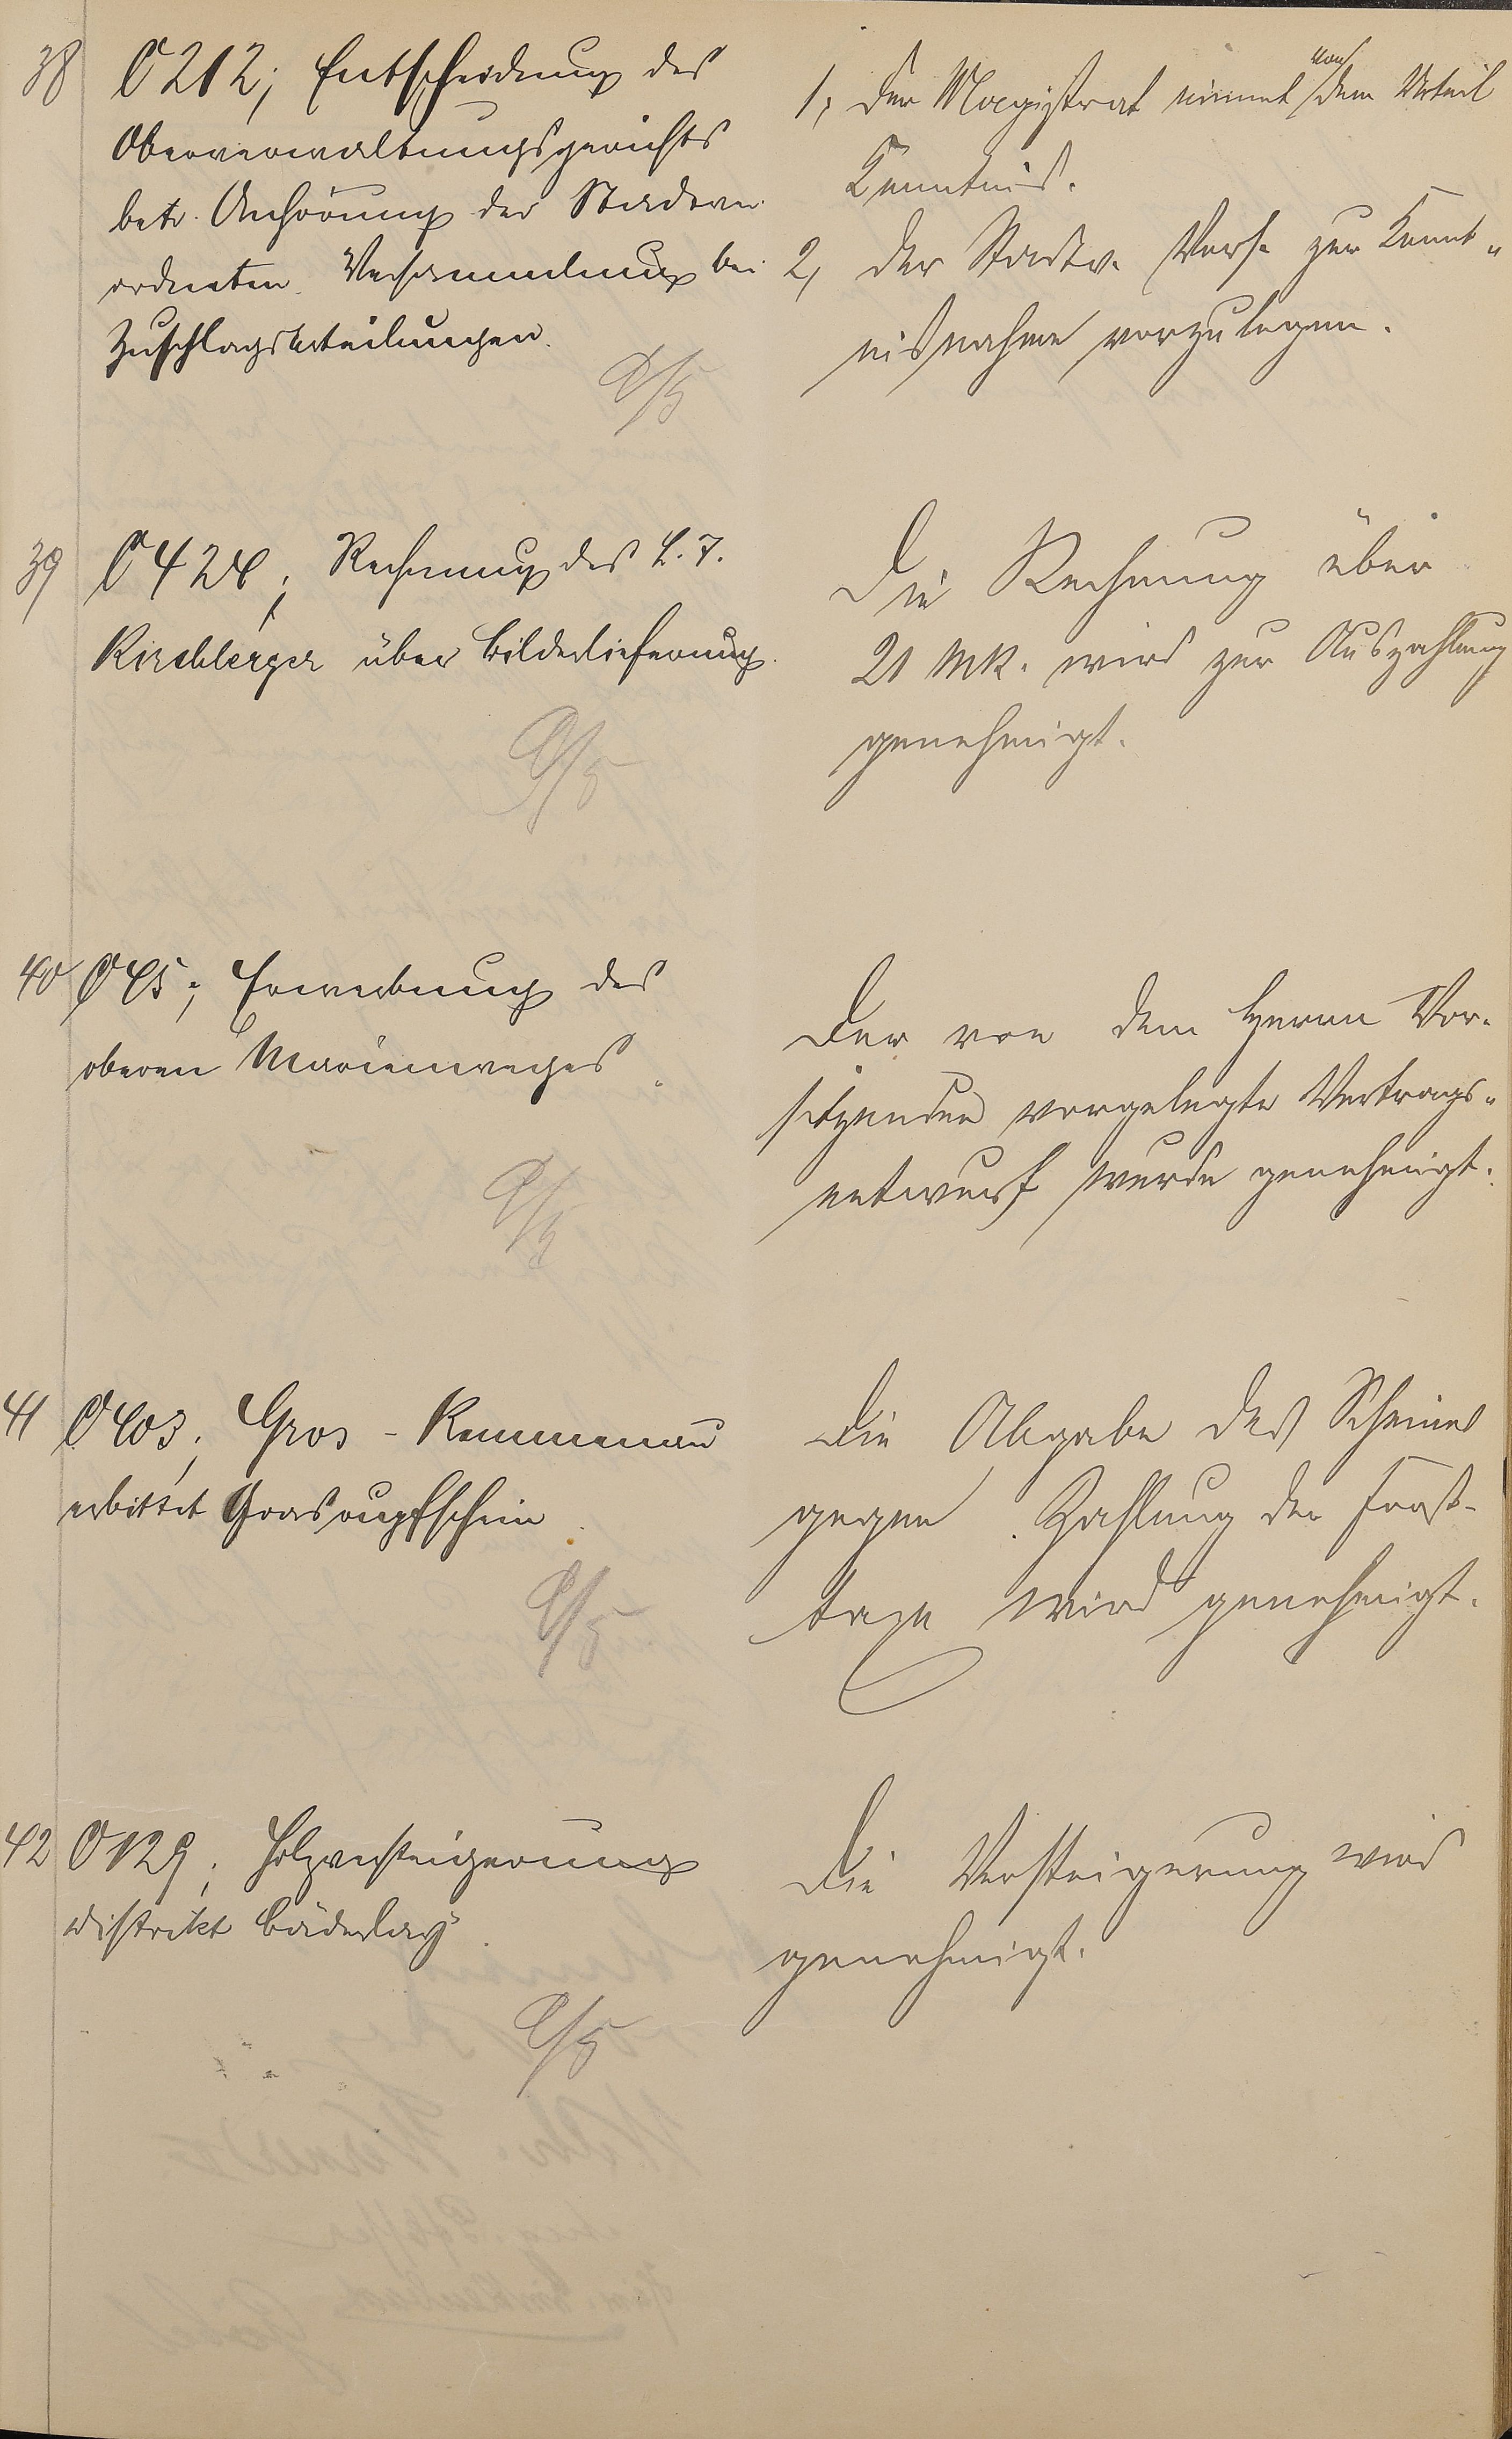 38 O 212; Entscheidung des
Oberverwaltungsgerichts
betr. Anhörung der Stadtver-
ordneten Versammlung bei
Zuschlagserteilungen.
1, Der Magistrat nimmt von dem Urteil
Kenntnis.
2, Der Stadtv. Vers. zur Kennt-
nißnahme vorzulegen.
39 O 424; Rechnung des L. J.
Kirchberger über Bilderlieferung.
Die Rechnung über
21 Mk. wird zur Auszahlung
genehmigt.
40 O 45; Erwerbung des
oberen Marienweges
Der von dem Herrn Vor-
sitzenden vorgelegte Vertrags-
entwurf wurde genehmigt.
41 O 403; Gros - Kemmenau
erbittet Grasrupfschein
Die Abgabe des Scheines
gegen Zahlung der Forst-
taxe wird genehmigt.
42 O 129; Holzversteigerung
Distrikt Bäderlay
Die Versteigerung wird
genehmigt.